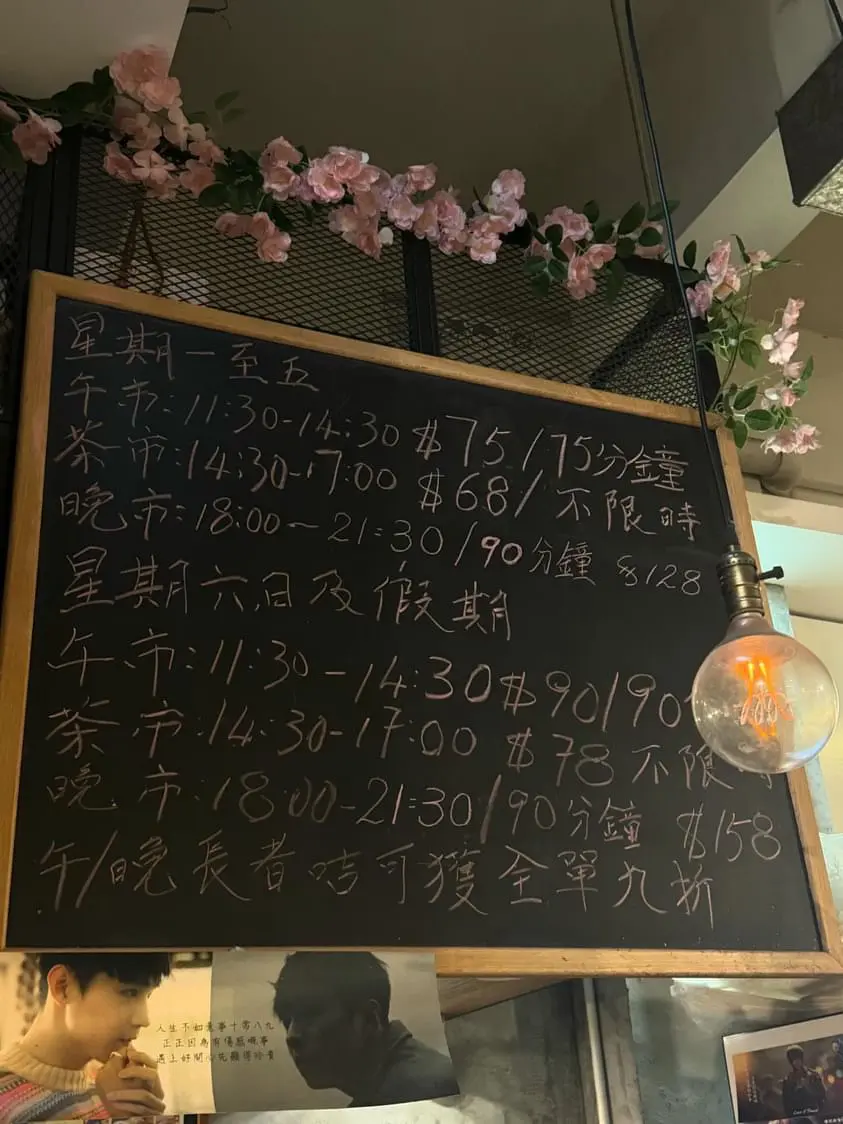 星期一至五
午市:11:30-14:30 $75/75分鐘
茶市:14:30-17:00 $68/不限時
晚市:18:00-21:30/90分鐘 $128
星期六,日及假期
午市:11:30-14:30 $90/90
茶市:14:30-17:00 $78 不限
晚市:18:00-21:30/90分鐘 $158
午/晚長者咭可獲全單九折
人生不如意事十常八九
正正因為有傷感嘅事
遇上好開心死顯得珍貴